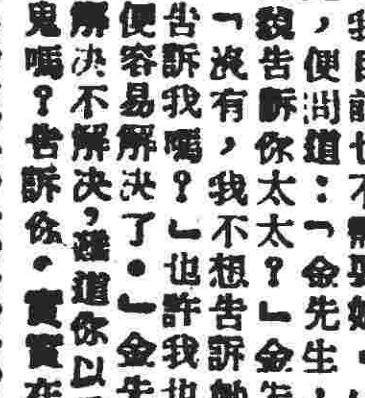 ，便問道：「金先生，
親告訴你太太？」金
「沒有，我不想告訴她
告訴我嗎？」也許我也
便容易解決了。」金先
解決不解決，難道你以
鬼嗎？告訴你。實實在